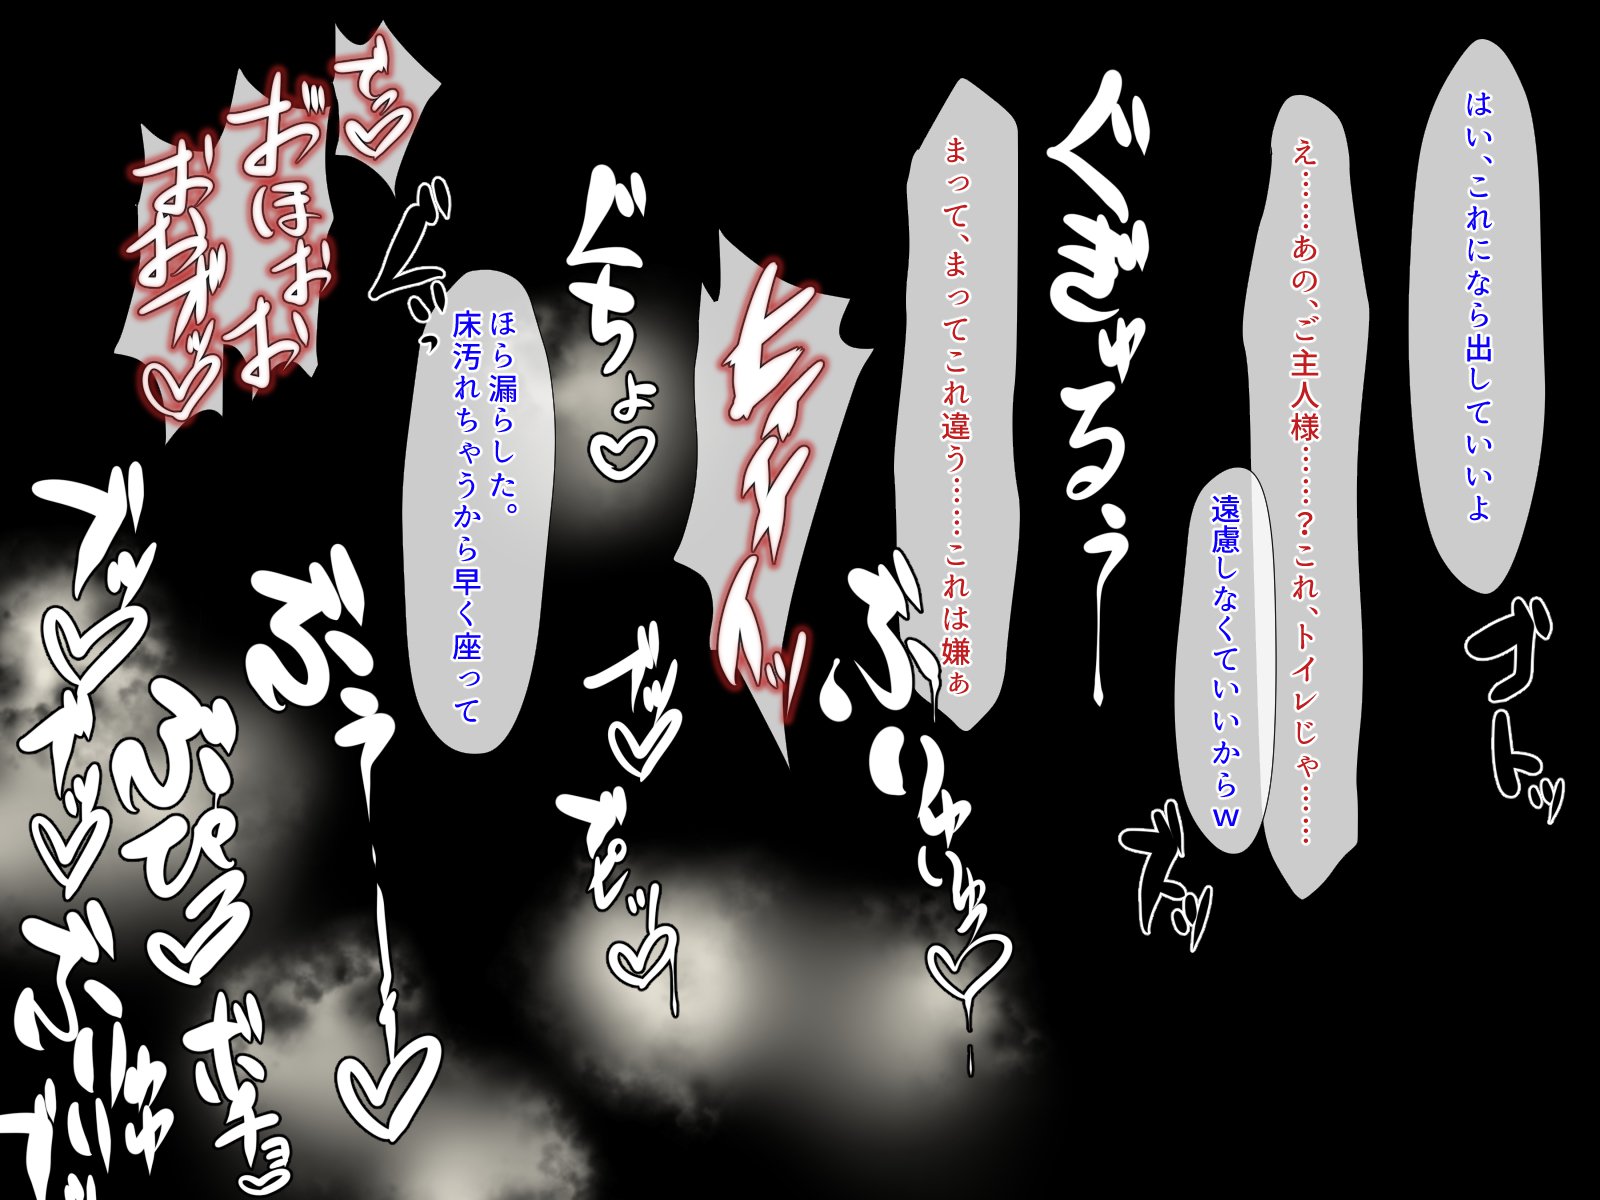 はい、これになら出していいよ
ゴトッ
え……あの、ご主人様……？これ、トイレじゃ……
遠慮しなくていいからw
ズドッ
ぐぎゅるぅ
まって、まってこれ違う……これは嫌ぁ
ぶりゅりゅっ♡
ヒィメイッ
ぐちょ♡
ブッ♡
ブピッ♡
ほら漏らした。
床汚れちゃうから早く座って
でっ♡
おほおお
おおオッ♡
ぶぅ
♡
ブッ♡
ブッ♡
ぶぴろ♡
ボチョ♡